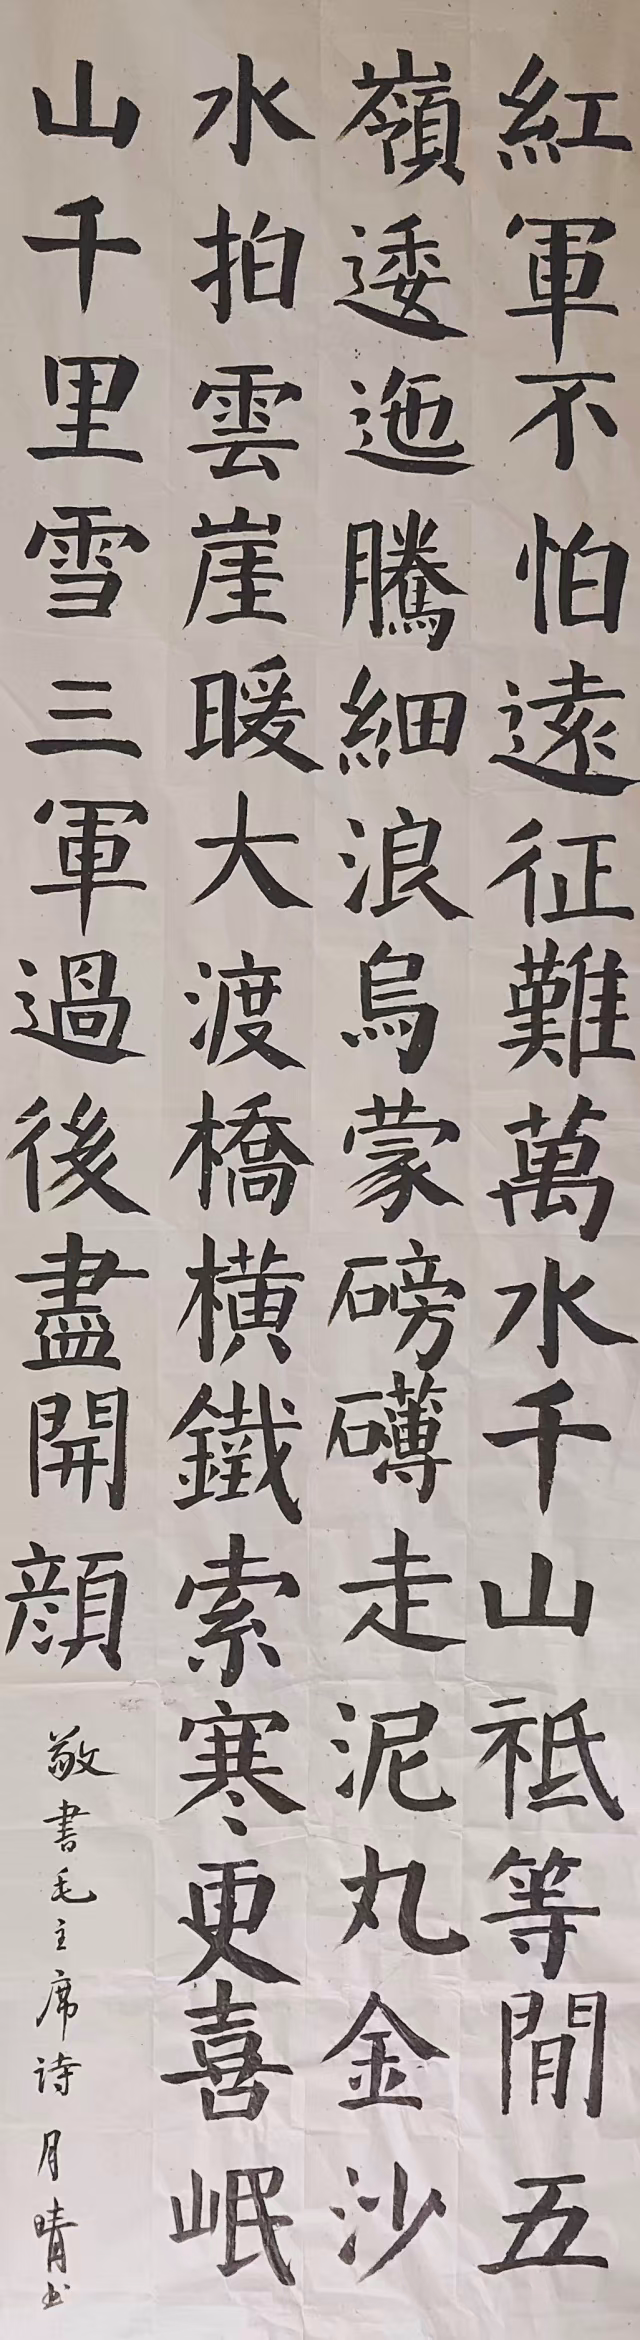 紅軍不怕遠征難萬水千山祗等間五
嶺逶迤騰細浪烏蒙磅礴走泥丸金沙
水拍雲崖暖大渡橋橫鐵索寒更喜岷
山千里雪三軍過後盡開顔
敬書毛主席诗月晴书